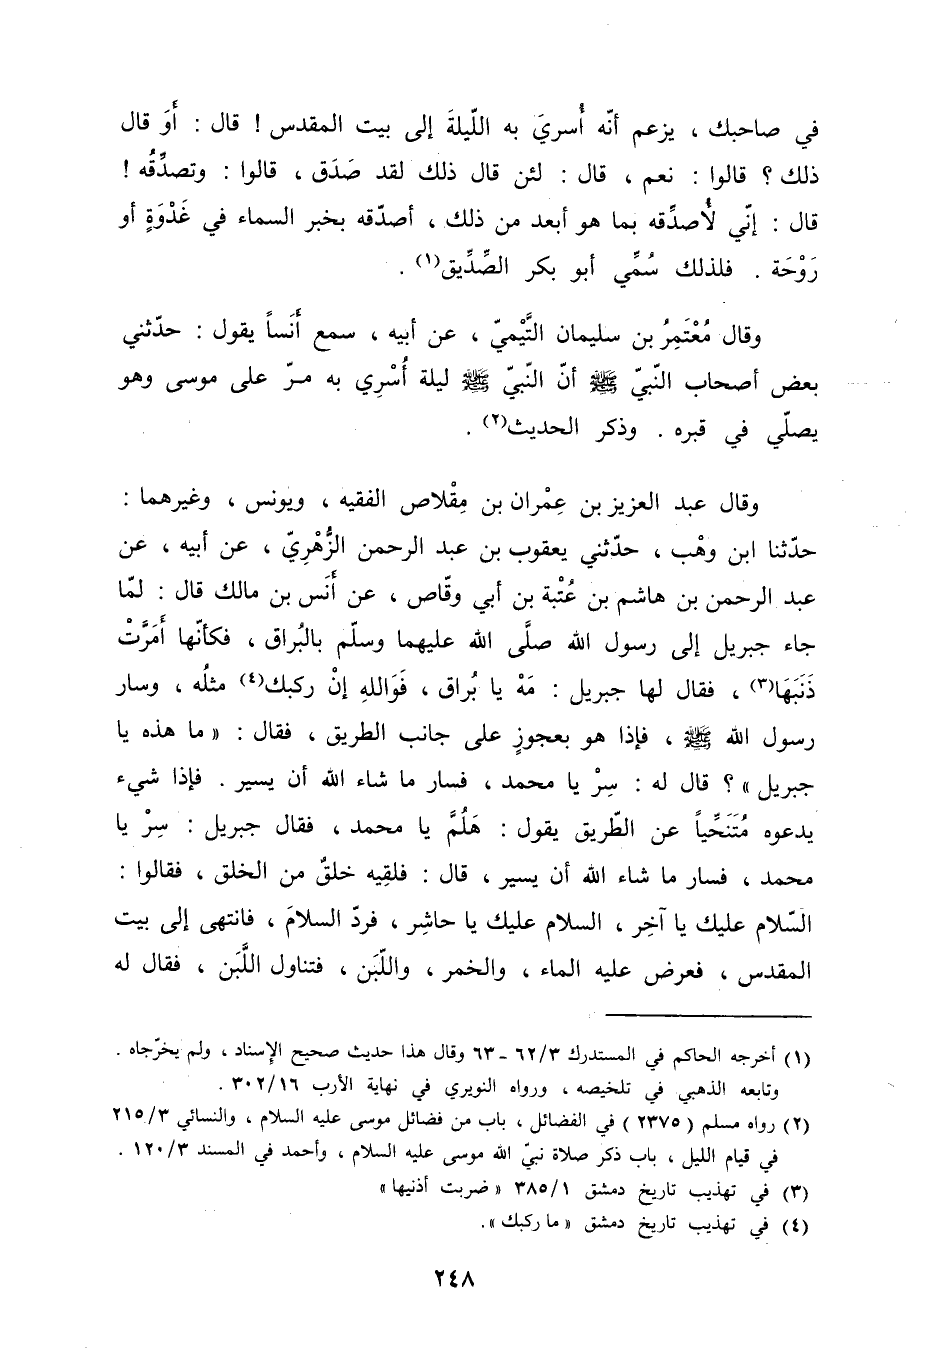 في صاحبك ، يزعم أنّه أُسريَ به اللّيلةَ إلى بيت المقدس ! قال : أَوَ قال
ذلك ؟ قالوا : نعم ، قال : لئن قال ذلك لقد صَدَق ، قالوا : وتصدِّقُه !
قال : إنّي لأُصدِّقه بما هو أبعد من ذلك ، أصدّقه بخبر السماء في غَدْوَةٍ أو
رَوْحَة . فلذلك سُمِّي أبو بكر الصِّدِّيق(١) .
وقال مُعْتَمِرُ بن سليمان التَّيْميّ ، عن أبيه ، سمع أَنَساً يقول : حدّثني
بعض أصحاب النّبيّ ﷺ أنّ النّبيّ ﷺ ليلة أُسْرِي به مـرّ على موسى وهو
يصلّي في قبره . وذكر الحديث(٢) .
وقال عبد العزيز بن عِمْران بن مِقْلاص الفقيه ، ويونس ، وغيرهما :
حدّثنا ابن وهْب ، حدّثني يعقوب بن عبد الرحمن الزُّهْرِيّ ، عن أبيه ، عن
عبد الرحمن بن هاشم بن عُتْبة بن أبي وقّاص ، عن أَنَس بن مالك قال : لمّا
جاء جبريل إلى رسول الله صلَّى الله عليهما وسلّم بالبُراق ، فكأنّها أَمَرَّتْ
ذَنَبَهَا(٣) ، فقال لها جبريل : مَهْ يا بُراق ، فَوَاللهِ إنْ ركبك(٤) مثلُه ، وسار
رسول الله ﷺ ، فإذا هو بعجوزٍ على جانب الطريق ، فقال : « ما هذه يا
جبريل » ؟ قال له : سِرْ يا محمد ، فسار ما شاء الله أن يسير . فإذا شيء
يدعوه مُتَنَحِّياً عن الطّريق يقول : هَلُمَّ يا محمد ، فقال جبريل : سِرْ يا
محمد ، فسار ما شاء الله أن يسير ، قال : فلقِيه خلقٌ من الخلق ، فقالوا :
السّلام عليك يا آخِر ، السلام عليك يا حاشِر ، فردّ السلامَ ، فانتهى إلى بيت
المقدس ، فعرض عليه الماء ، والخمر ، واللّبَن ، فتناول اللَّبَن ، فقال له
(١) أخرجه الحاكم في المستدرك ٦٢/٣ - ٦٣ وقال هذا حديث صحيح الإسناد ، ولم يخرّجاه .
وتابعه الذهبي في تلخيصه ، ورواه النويري في نهاية الأرب ٣٠٢/١٦ .
(٢) رواه مسلم ( ٢٣٧٥ ) في الفضائل ، باب من فضائل موسى عليه السلام ، والنسائي ٢١٥/٣
في قيام الليل ، باب ذكر صلاة نبيّ الله موسى عليه السلام ، وأحمد في المسند ١٢٠/٣ .
(٣) في تهذيب تاريخ دمشق ٣٨٥/١ « ضربت أذنيها »
(٤) في تهذيب تاريخ دمشق « ما ركبك » .
٢٤٨